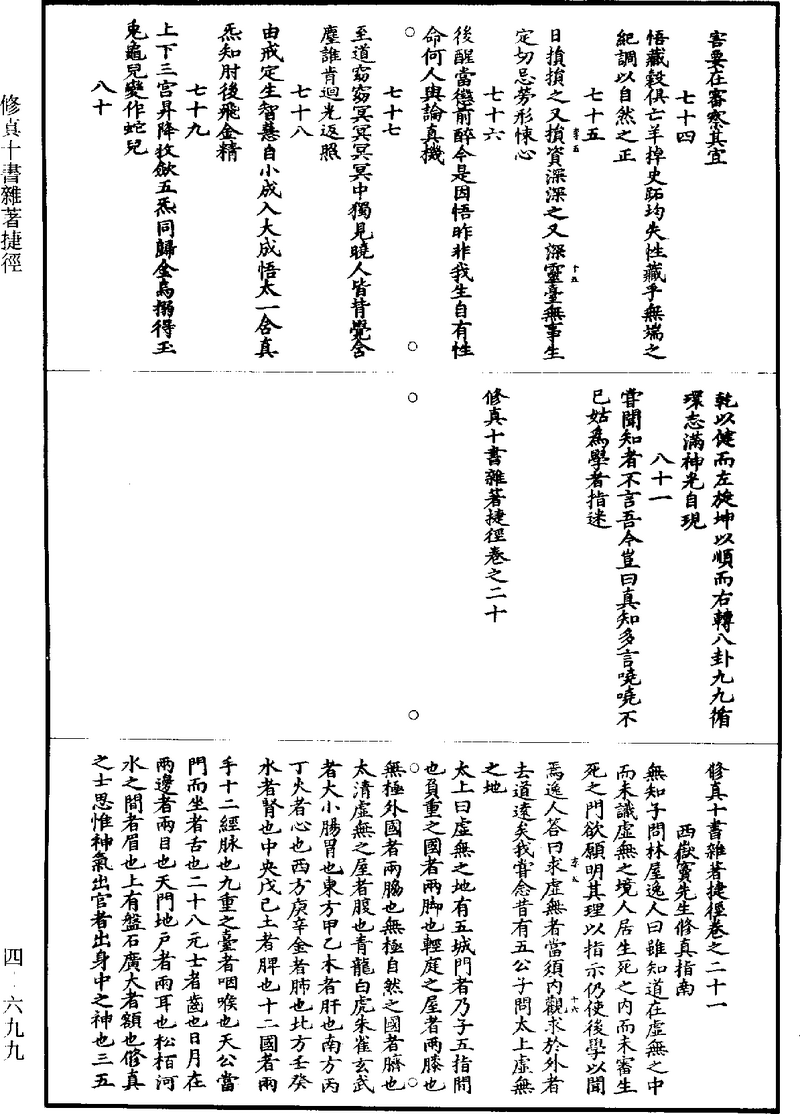 害要在審察其宜
七十四
悟藏穀俱亡羊掉史跖均失性藏乎無端之
紀調以自然之正
七十五
日損損之又損資深深之又深靈臺無事生
定切忌勞形悚心
七十六
後醒當懲前醉今是因悟昨非我生自有性
命何人與論真機
七十七
至道窈窈冥冥冥冥中獨見曉人皆背覺合
塵誰肯迴光返照
七十八
由戒定生智慧自小成入大成悟太一含真
炁知肘後飛金精
七十九
上下三宮昇降收斂五炁同歸金烏搦得玉
兔龜兒變作蛇兒
八十
乾以健而左旋坤以順而右轉八卦九九循
環志滿神光自現
八十一
嘗聞知者不言吾今豈曰真知多言嘵嘵不
已姑為學者指迷
修真十書雜著捷徑卷之二十
修真十書雜著捷徑卷之二十一
西嶽竇先生修真指南
無知子問林屋逸人曰雖知道在虛無之中
而未識虛無之境人居生死之內而未審生
死之門欲願明其理以指示仍使後學以聞
焉逸人答曰求虛無者當須內觀求於外者
去道遠矣我嘗念昔有五公子問太上虛無
之地
太上曰虛無之地有五城門者乃子五指間
也負重之國者兩脚也輕庭之屋者兩膝也
無極外國者兩脇也無極自然之國者臍也
太清虛無之屋者腹也青龍白虎朱雀玄武
者大小腸胃也東方甲乙木者肝也南方丙
丁火者心也西方庚辛金者肺也北方壬癸
水者腎也中央戊己土者脾也十二國者兩
手十二經脉也九重之臺者咽喉也天公當
門而坐者舌也二十八元士者齒也日月在
兩邊者兩目也天門地戶者兩耳也松栢河
水之間者眉也上有盤石廣大者額也修真
之士思惟神氣出官者出身中之神也三五
修真十書雜著捷徑
四·六九九